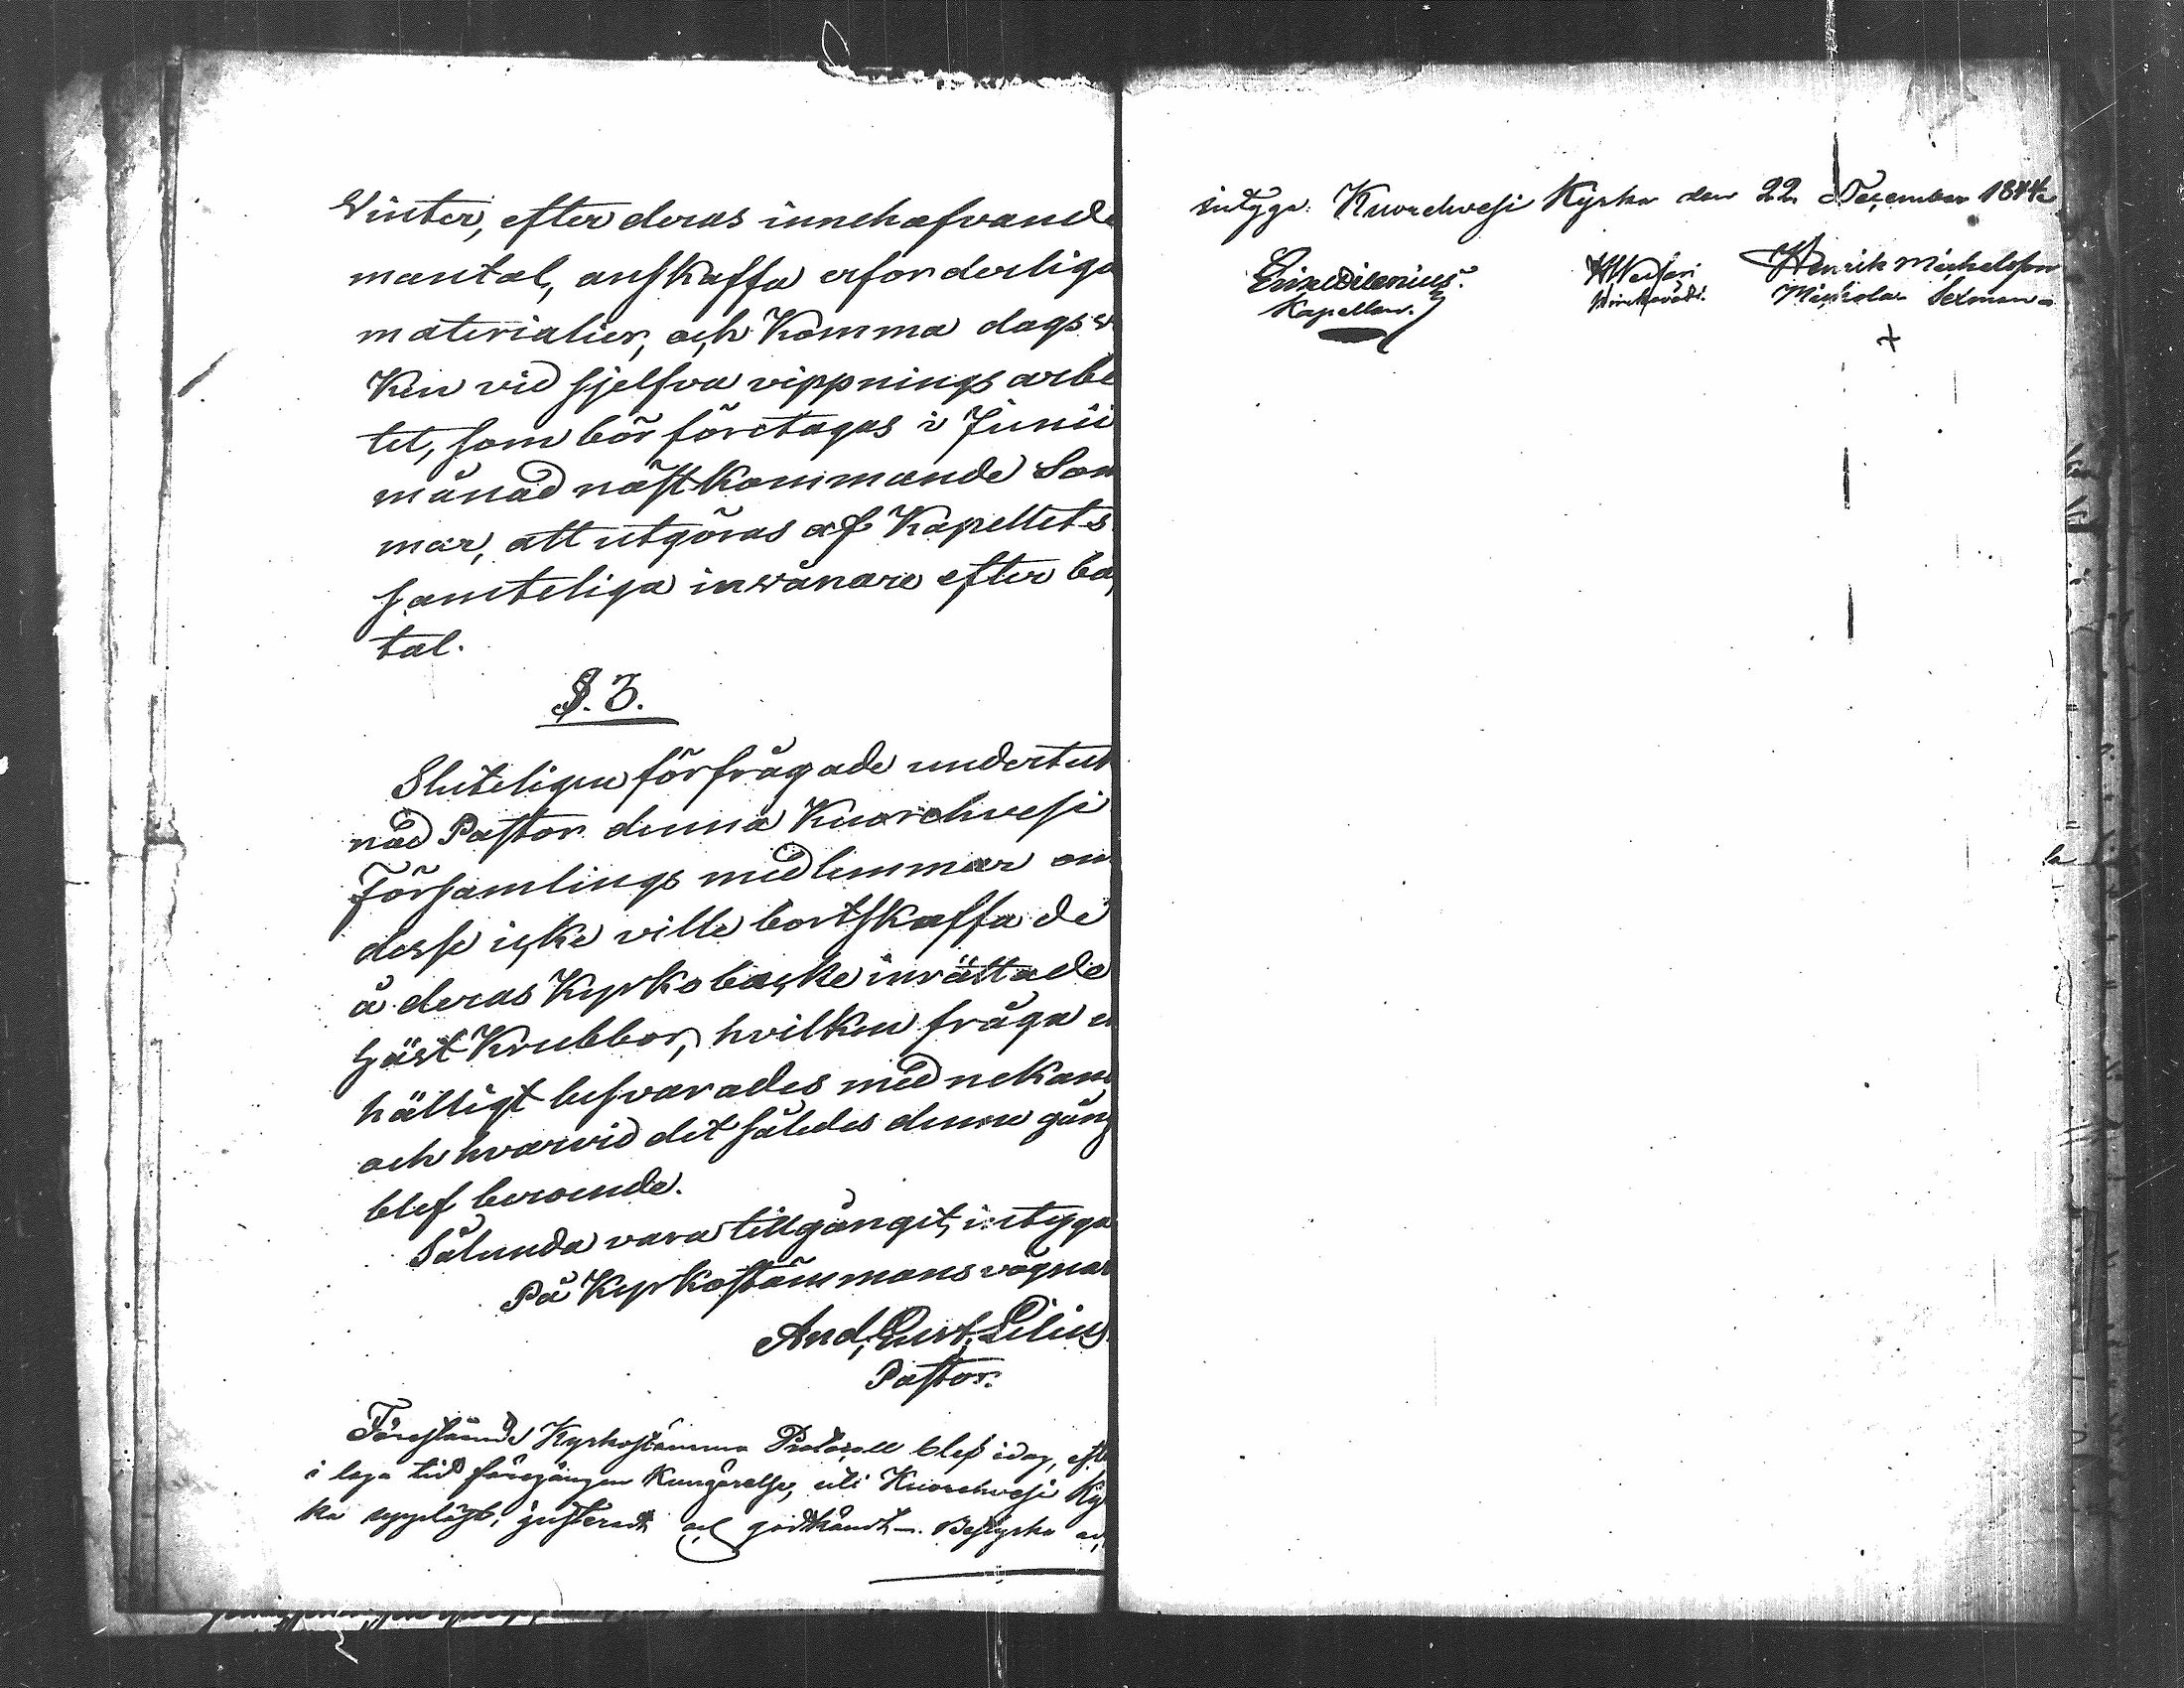 Winter, efter deras innehafvande
mantal, anskaffa erforderliga
materialier, och Komma dags w
Ken vid sjelfva vippnings arbe
tet, som bör företagas i Junii
månad nästkommande Som
mar, att utgöras af Kapellets
samteliga inwånare efter ba
tal.
§. 3.
Sluteligen förfrågade undertek
nad Pastor denna Kuorehvesi
Församlings medlemmar om
desse icke ville bortskaffa de
å deras Kyrkobacke inrättade
Häst Krubbor, hvilken fråga en
hälligt besvarades med nekan
och hvarvid det således denna gång
blef beroende.
Sålunda vara tillgångit, intygar
På Kyrkostämmans vägnar
And. Gust. Lilius
Pastor.
Förestående Kyrkostämma Protocoll blef idag, efter
i laga tid föregången Kungörelse, uti Kuorehvesi Kyr
ka uppläst, justeradt och godkändt. Bestyrka och
intyga. Kuorehvesi Kyrka den 22 December 1844
Henrik Michelsson
Kapellan.
Sexman
+